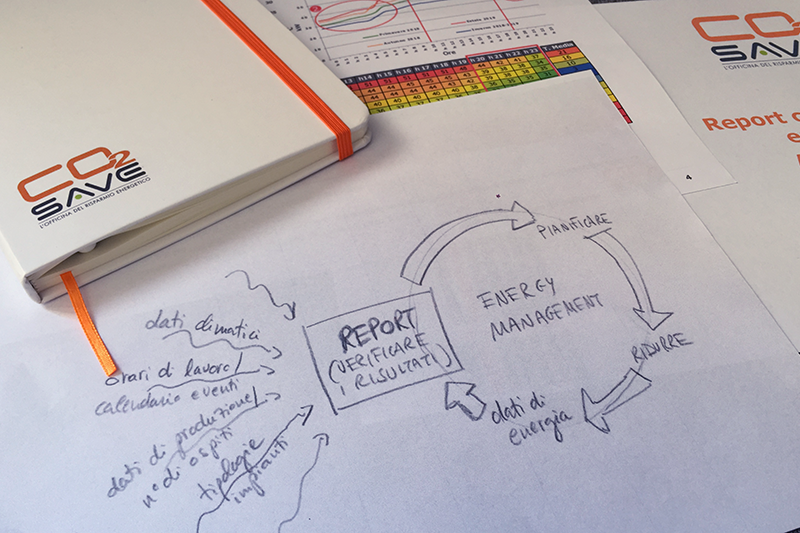 CO2
SAVE
L'OFFICINA DEL RISPARMIO ENERGETICO
Primavera 2018
Estate 2018
Autunno 2018
Ore
h14 h15 h16 h17 h18 h19 h20 h21 h22 h23 T. Media
4
CO2
SAVE
L'OFFICINA DEL RISPARMIO ENERGETICO
Report
e
PIANIFICARE
ENERGY
MANAGEMENT
RIDURRE
dati di
energia
REPORT
(VERIFICARE
I RISULTATI)
dati climatici
orari di lavoro/
calendario eventi
dati di produzione/
n° di ospiti
tipologie
impianti